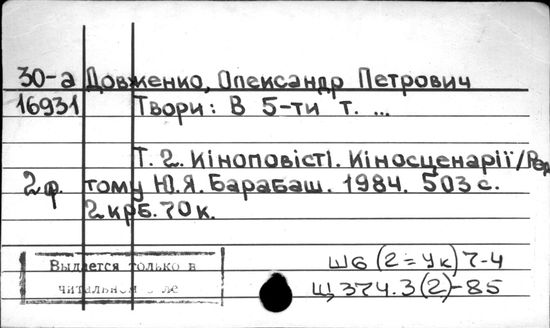 30-а Довженко, Олександр Петрович
16931 Твори: В 5-ти т. ...
Т. 2. Кіноповісті. Кіносценарії/Ред.
2 ф. тому Ю.Я. Барабаш. 1984. 503 с.
2 крб. 70 к.
Ш6 (2=Ук) 7-4
Щ 374.3(2)-85
Выдается только в
читальном зале